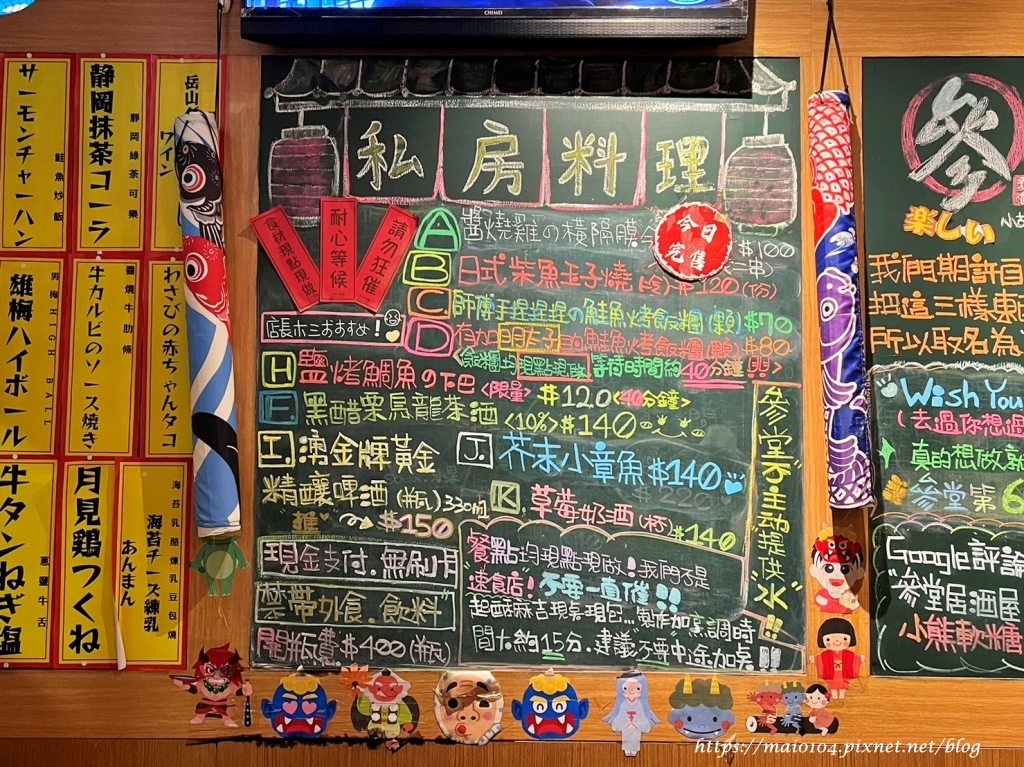 CHIMEI
サーモンチャーハン
鮭魚炒飯
静岡抹茶コーラ
靜岡綠茶可樂
岳山
ワイン
雄梅ハイボール
男梅HIGH BALL
牛カルビのソース焼き
醬燒牛肋條
わさびの赤ちゃんタコ
牛タンねぎ塩
蔥鹽牛舌
月見鶏つくね
海苔チーズ練乳
あんまん
海苔乳酪煉乳豆包燒
私房料理
食材現點現做
耐心等候
請勿狂催
A 醬燒雞の橫隔膜
今日完售
$100
(一串)
B 日式柴魚玉子燒 $120 (份)
C. 師傅手捏捏捏の鮭魚烤飯糰(顆) $70
店長ホミおすすめ!
D 有加明太子の鮭魚烤飯糰(顆) $80
飯糰均現點現做 等待時間約40分鐘!!!
H 鹽烤鯛魚の下巴 <限量> $120 <40分鐘>
F 黑醋栗烏龍茶酒 <10%> $140
I. 漓金牌黃金
精釀啤酒(瓶) 330ml
推 $150
J. 芥末小章魚 $140
K 草莓奶酒(杯) $140
參堂不主動提供水!!
現金支付.無刷卡
禁帶外食.飲料
開瓶費$400(瓶)
餐點均現點現做!我們不是
速食店!不要一直催!!
起司麻吉現桌現包...製作加烹調時
間大約15分.建議不要中途加桌!!
參
楽しい
我們期許自
把這三樣東
所以取名為
Wish You
(去過你想過
真的想做就
參堂 第6
Google評論
"參堂居酒屋
小熊軟糖
https://maio104.pixnet.net/blog